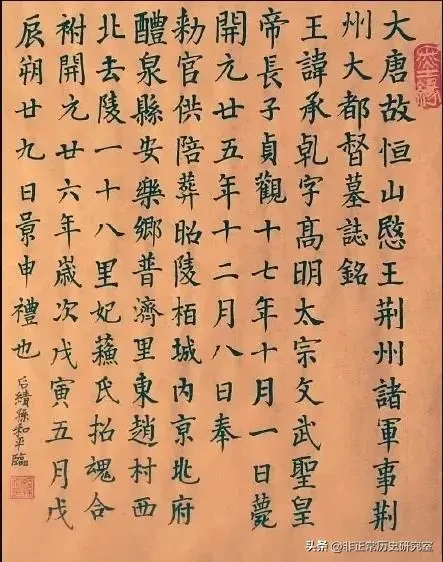 大唐故恒山愍王荆州諸軍事荆
州大都督墓誌銘
王諱承乹字髙明太宗文武聖皇
帝長子貞觀十七年十月一日薨
開元廿五年十二月八日奉
勑官供陪葬昭陵栢城内京兆府
醴泉縣安樂鄉普濟里東趙村西
北去陵一十八里妃蘓氏招魂合
祔開元廿六年嵗次戊寅五月戊
辰朔廿九日景申禮也
孫和平臨
头条 @非正常历史研究室